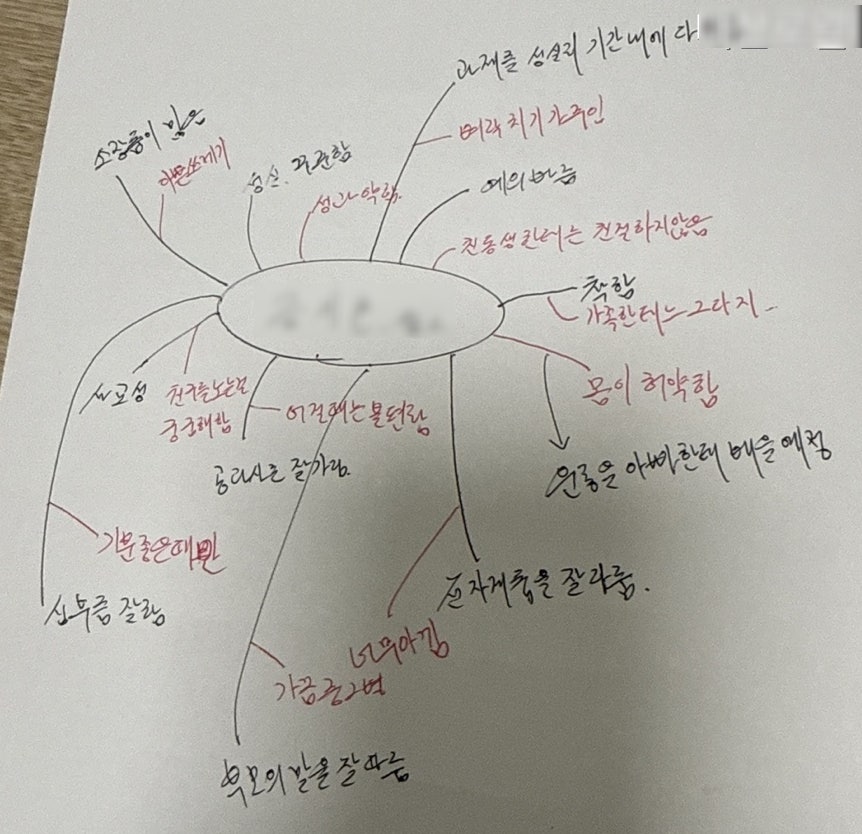 과제를 성실히 기간내에 다
벼락치기가 주인
소장품이 많은
이쁜쓰레기
성실. 꾸준함
성과 약함.
예의바름
친동생한테는 친절하지않음
착함
가족한테는 그다지 -
몸이 허약함
운동을 아빠한테 배울 예정
사교성
친구를 노는걸
궁금해함
어쩔때는 불편함
공다시는 잘가림.
기분좋은때만
심부름 잘함
전자제품을 잘 다룸.
너무아낌
가끔중2병
부모의 말을 잘 따름